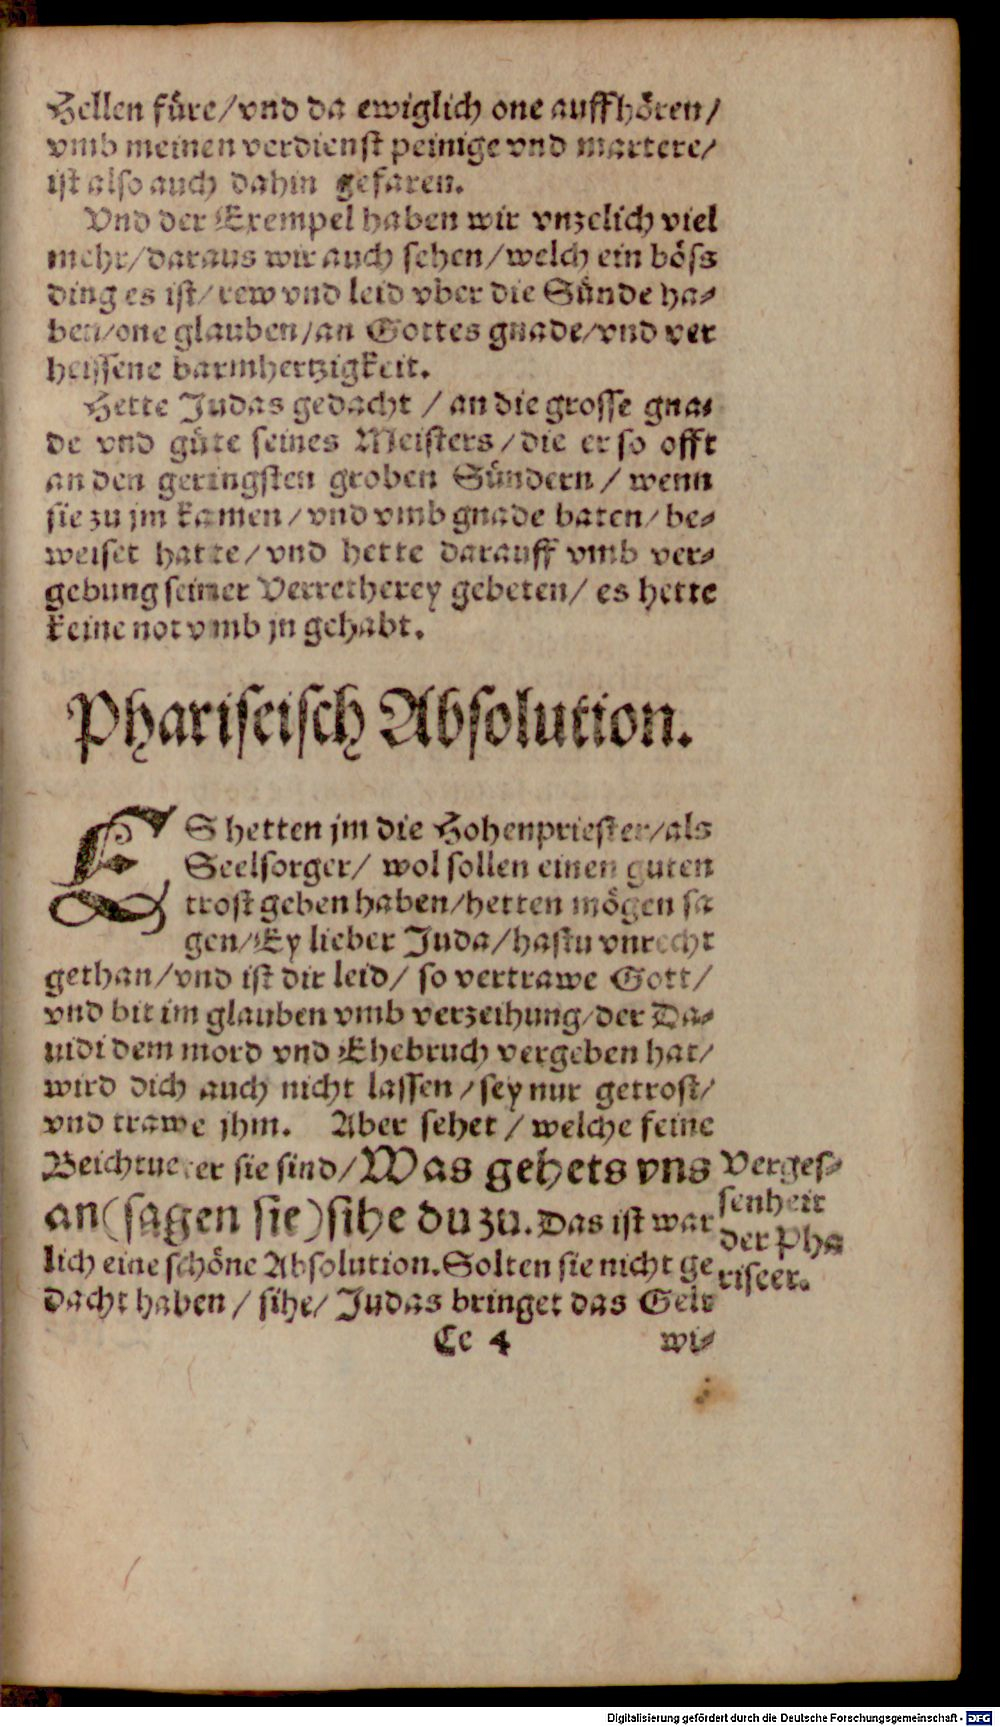 Hellen füre/vnd da ewiglich one auffhören/
vmb meinen verdienst peinige vnd martere/
ist also auch dahin gefaren.
Vnd der Exempel haben wir vnzelich viel
mehr/daraus wir auch sehen/welch ein böss
ding es ist/rew vnd leid vber die Sünde ha-
ben/one glauben/an Gottes gnade/vnd ver
heissene barmhertzigkeit.
Hette Judas gedacht / an die grosse gna-
de vnd güte seines Meisters/die er so offt
an den geringsten groben Sündern / wenn
sie zu jm kamen/vnd vmb gnade baten/be-
weiset hatte/vnd hette darauff vmb ver-
gebung seiner Verretherey gebeten/ es hette
keine not vmb jn gehabt.
Phariseisch Absolution.
ES hetten jm die Hohenpriester/als
Seelsorger/ wol sollen einen guten
trost geben haben/hetten mögen sa
gen/Ey lieber Juda/hastu vnrecht
gethan/vnd ist dir leid/ so vertrawe Gott/
vnd bit im glauben vmb verzeihung/der Da-
uidi dem mord vnd Ehebruch vergeben hat/
wird dich auch nicht lassen/sey nur getrost/
vnd trawe jhm. Aber sehet / welche feine
Beichtueter sie sind/Was gehets vns
an(sagen sie)sihe du zu. Das ist war
lich eine schöne Absolution. Solten sie nicht ge
dacht haben / sihe/ Judas bringet das Gelt
Verges-
senheit
der Pha
riseer.
Cc 4
wi-
Digitalisierung gefördert durch die Deutsche Forschungsgemeinschaft - DFG